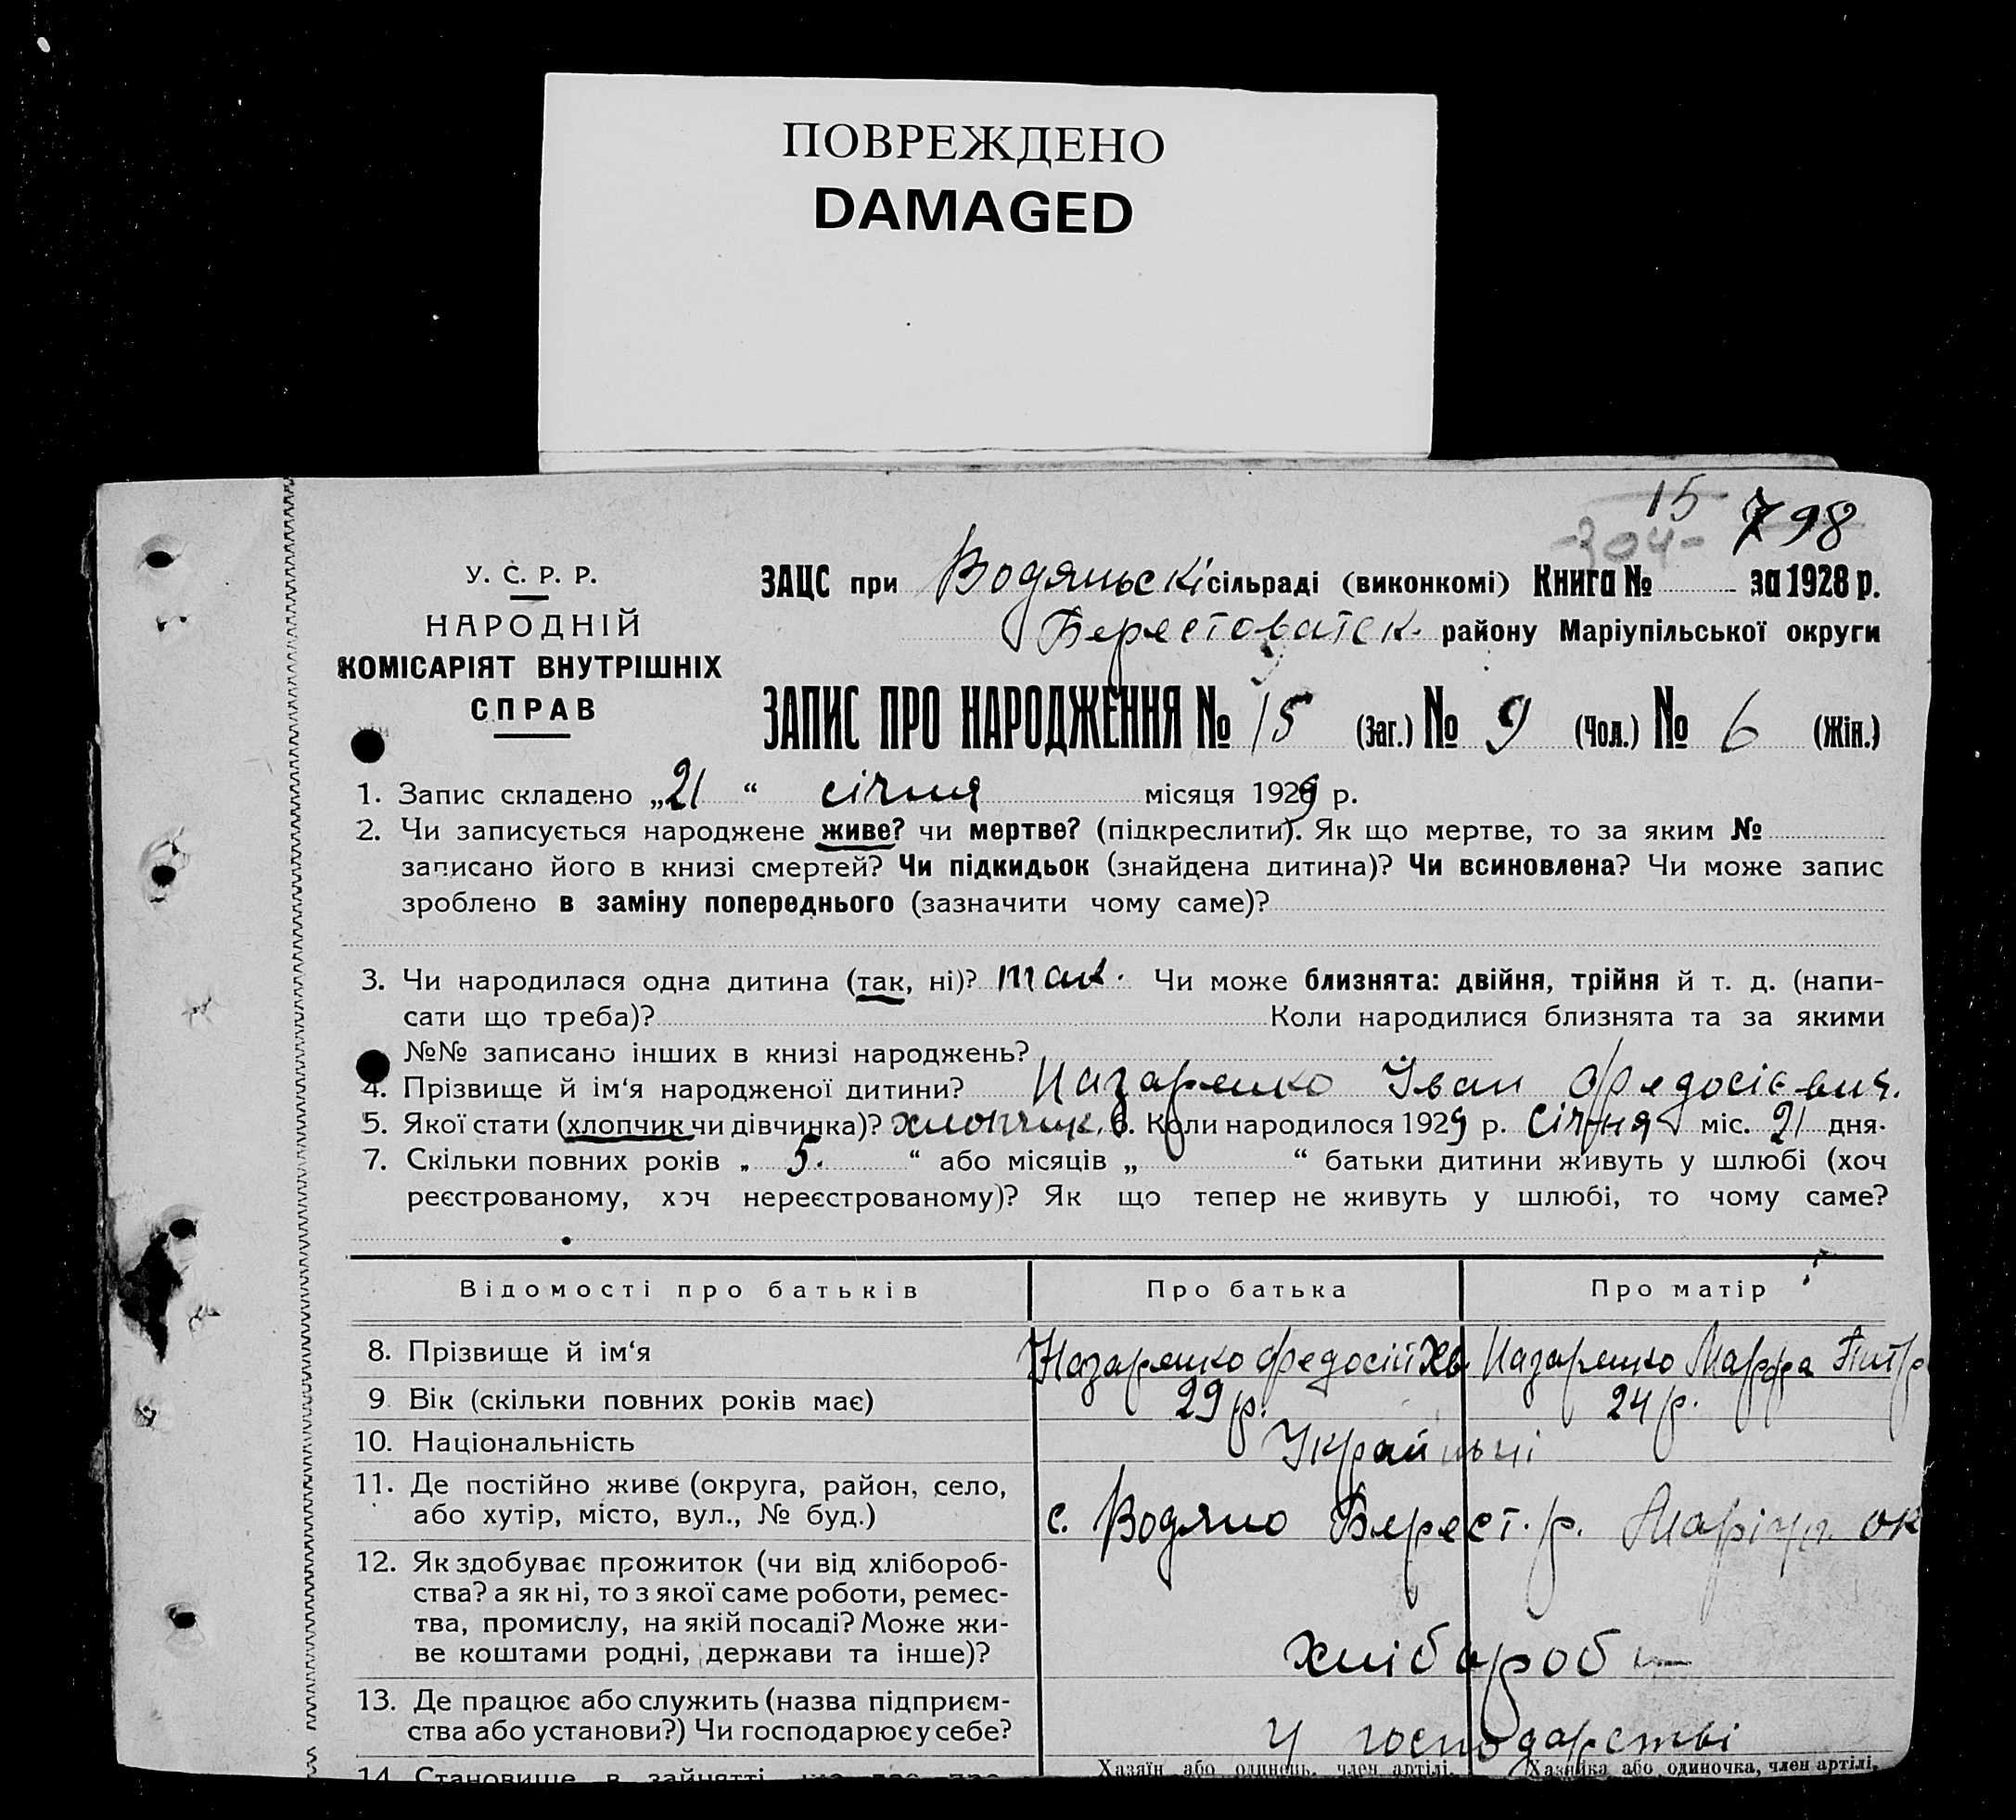 ПОВРЕЖДЕНО
DAMAGED
15
-304- 798
У. С. Р. Р.
НАРОДНІЙ
КОМІСАРІЯТ ВНУТРІШНІХ
СПРАВ
ЗАЦС при Водяньскі сільраді (виконкомі) Книга № за 1928 р.
Берестоватск. району Маріупільської округи
ЗАПИС ПРО НАРОДЖЕННЯ № 15 (Заг.) № 9 (Чол.) № 6 (Жін.)
1. Запис складено „21“ січня місяця 1929 р.
2. Чи записується народжене живе? чи мертве? (підкреслити). Як що мертве, то за яким №
записано його в книзі смертей? Чи підкидьок (знайдена дитина)? Чи всиновлена? Чи може запис
зроблено в заміну попереднього (зазначити чому саме)?
3. Чи народилася одна дитина (так, ні)? так. Чи може близнята: двійня, трійня й т. д. (напи-
сати що треба)? Коли народилися близнята та за якими
№№ записано інших в книзі народжень?
4. Прізвище й ім‘я народженої дитини? Назаренко Іван Федосієвич.
5. Якої стати (хлопчик чи дівчинка)? хлопчик. 6. Коли народилося 1929 р. січня міс. 21 дня.
7. Скільки повних років „ 5. “ або місяців „ “ батьки дитини живуть у шлюбі (хоч
реєстрованому, хоч нереєстрованому)? Як що тепер не живуть у шлюбі, то чому саме?
Відомості про батьків Про батька Про матір
8. Прізвище й ім‘я Назаренко Федосій Хв. Назаренко Марфа Питр
9. Вік (скільки повних років має) 29 р. 24 р.
10. Національність Україньці
11. Де постійно живе (округа, район, село,
або хутір, місто, вул., № буд.) с. Водяно Берест. р. Маріуп. ок
12. Як здобуває прожиток (чи від хлібороб-
ства? а як ні, то з якої саме роботи, ремес-
тва, промислу, на якій посаді? Може жи-
ве коштами родні, держави та інше)? хлібароби
13. Де працює або служить (назва підприєм-
ства або установи?) Чи господарює у себе? У господарстві
14. Становище в зайнятті, що дає про-
Хазяїн або одинець, член артілі, Хазяйка або одиночка, член артілі,